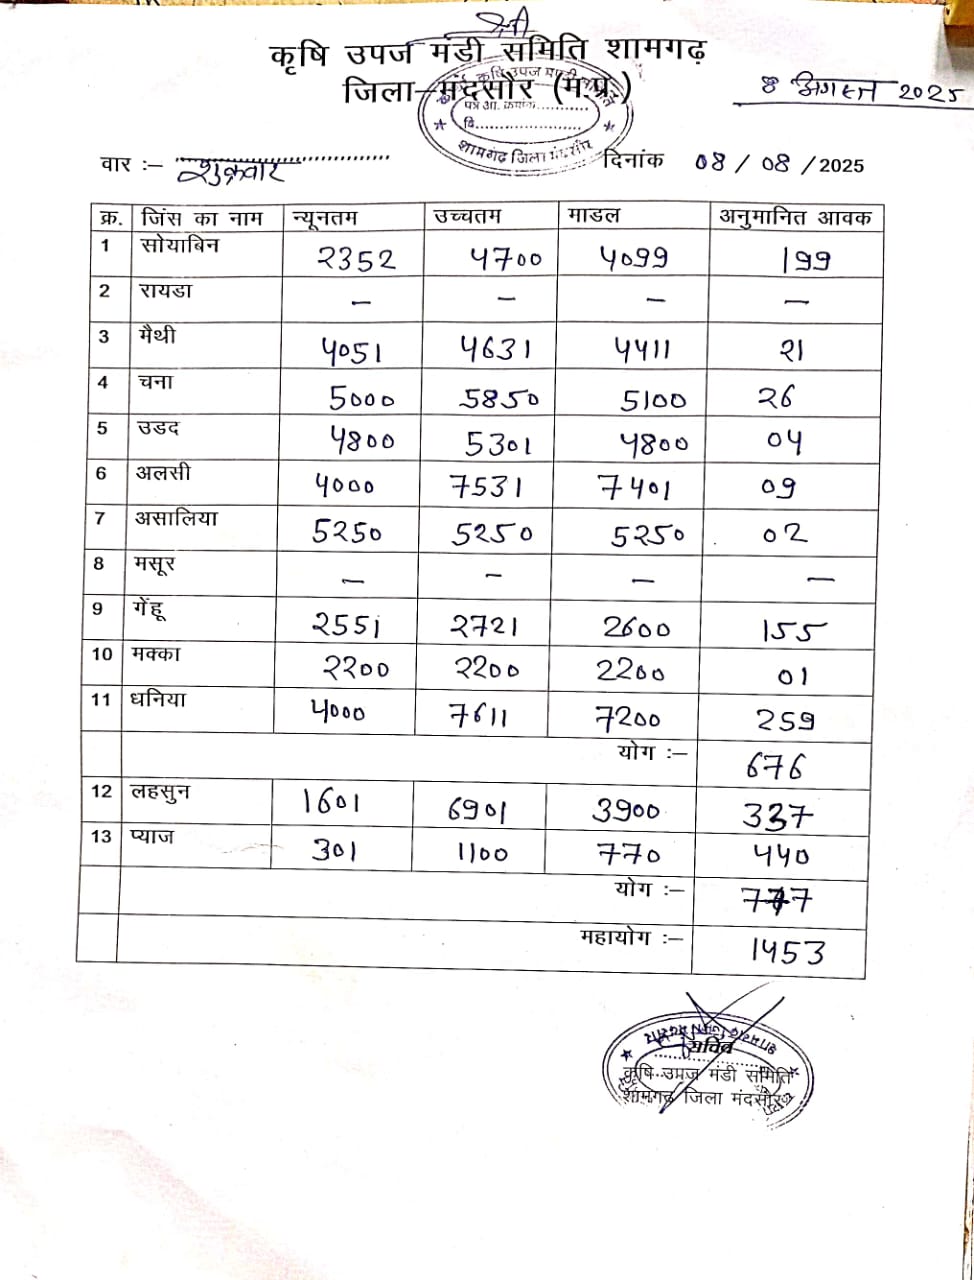 श्री
कृषि उपज मंडी समिति शामगढ़
जिला–मंदसौर (म.प्र.)
8 अगस्त 2025
कृषि उपज मण्डी समिति
पत्र आ. क्रमांक............
दि........................
शामगढ़ जिला मंदसौर
वार :– शुक्रवार दिनांक 08 / 08 / 2025
क्र. जिंस का नाम न्यूनतम उच्चतम माडल अनुमानित आवक
1 सोयाबिन 2352 4700 4099 199
2 रायडा – – – –
3 मैथी 4051 4631 4411 21
4 चना 5000 5850 5100 26
5 उडद 4800 5301 4800 04
6 अलसी 4000 7531 7401 09
7 असालिया 5250 5250 5250 02
8 मसूर – – – –
9 गेंहू 2551 2721 2600 155
10 मक्का 2200 2200 2200 01
11 धनिया 4000 7611 7200 259
योग :– 676
12 लहसुन 1601 6901 3900 337
13 प्याज 301 1100 770 440
योग :– 777
महायोग :– 1453
सचिव
कृषि उपज मंडी समिति
शामगढ़ जिला मंदसौर